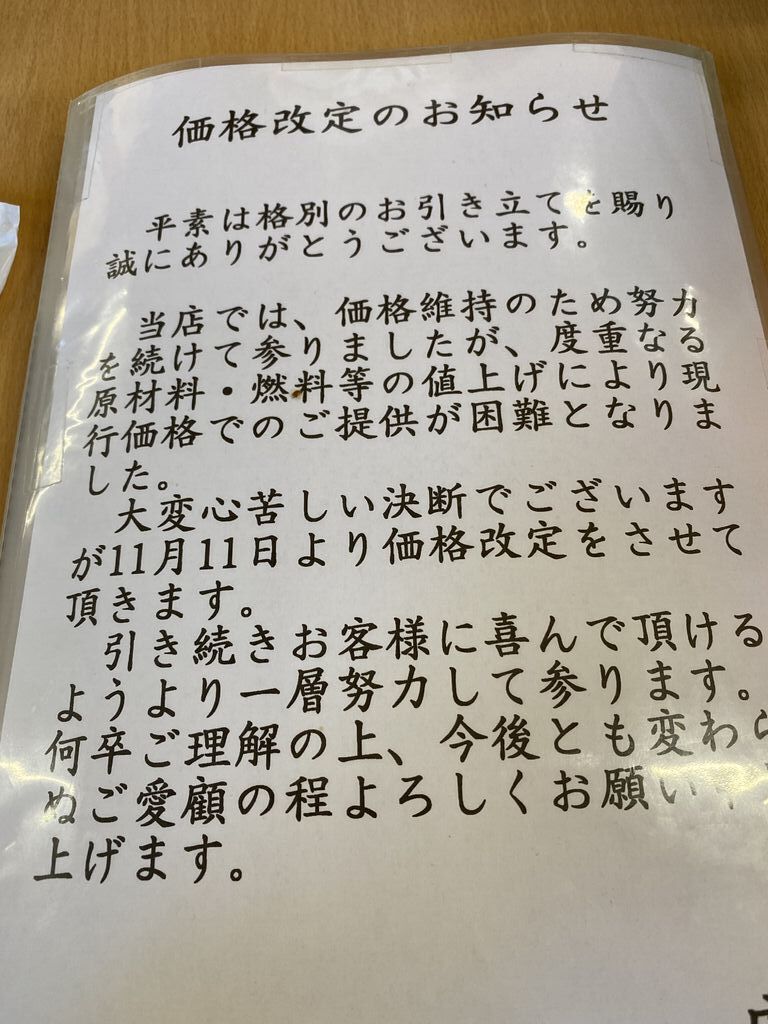 価格改定のお知らせ
平素は格別のお引き立てを賜り
誠にありがとうございます。
当店では、価格維持のため努力
を続けて参りましたが、度重なる
原材料・燃料等の値上げにより現
行価格でのご提供が困難となりま
した。
大変心苦しい決断でございます
が11月11日より価格改定をさせて
頂きます。
引き続きお客様に喜んで頂ける
ようより一層努力して参ります。
何卒ご理解の上、今後とも変わら
ぬご愛顧の程よろしくお願い
上げます。